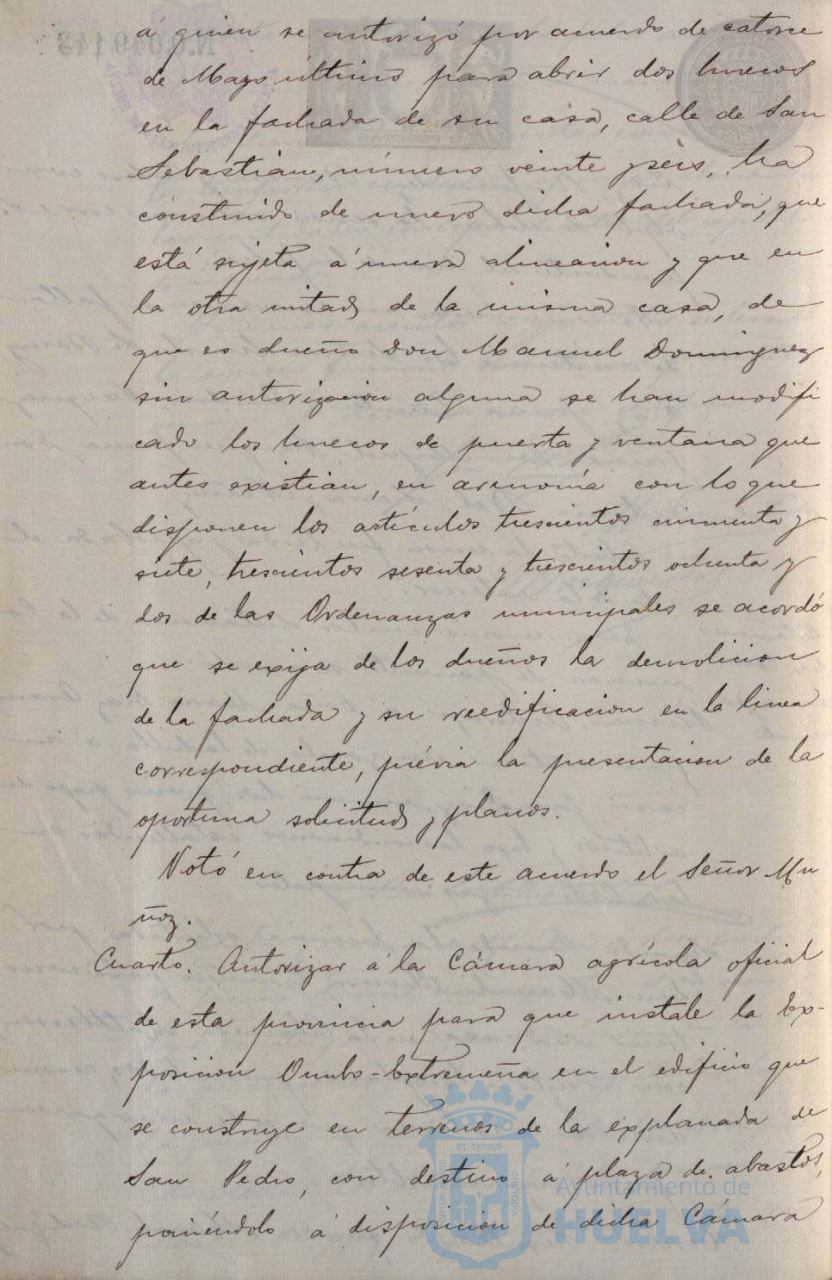 á quien se autorizó por acuerdo de catorce
de Mayo último para abrir dos huecos
en la fachada de su casa, calle de San
Sebastián, número veinte y seis, ha
construido de nuevo dicha fachada, que
está sujeta á nueva alineacion y que en
la otra mitad de la misma casa, de
que es dueño Don Manuel Dominguez
sin autorizacion alguna se han modifi
cado los huecos de puerta y ventana que
antes existian, en armonía con lo que
disponen los artículos trescientos cincuenta y
siete, trescientos sesenta y trescientos ochenta y
dos de las Ordenanzas municipales se acordó
que se exija de los dueños la demolicion
de la fachada y su reedificacion en la linea
correspondiente, prévia la presentacion de la
oportuna solicitud y planos.
Votó en contra de este acuerdo el Señor Mu
ñoz.
Cuarto. Autorizar á la Cámara agrícola oficial
de esta provincia para que instale la Ex-
posicion Onubo-Extremeña en el edificio que
se construye en terrenos de la explanada de
San Pedro, con destino á plaza de abastos,
poniéndolo á disposicion de dicha Cámara
Ayuntamiento de
HUELVA